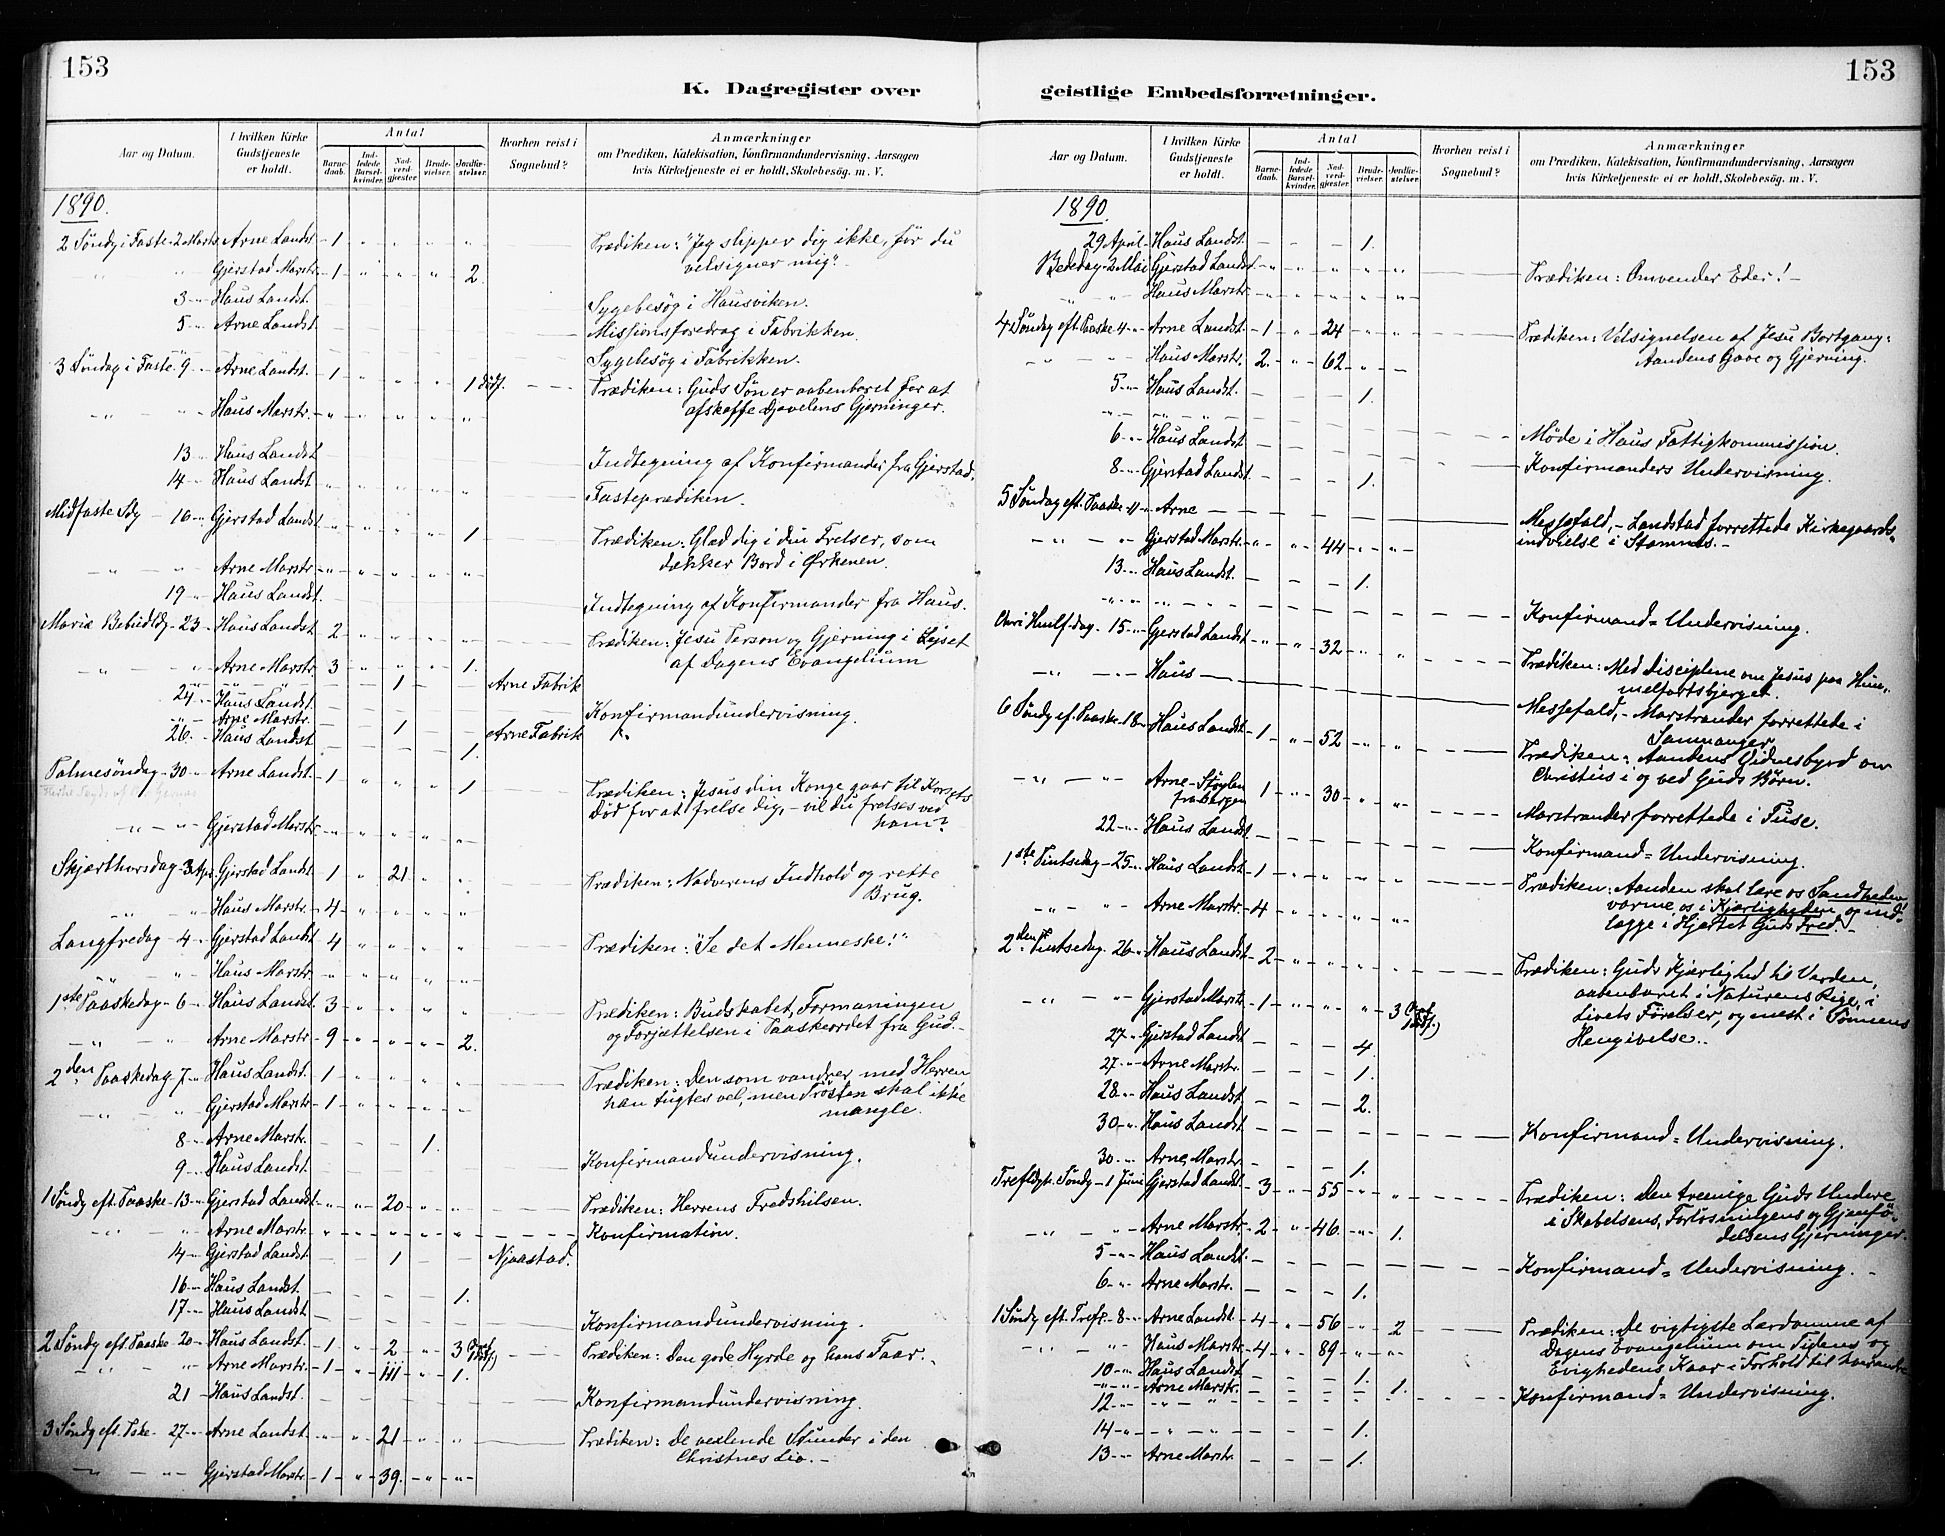 153
K. Dagregister over
Aar og Datum.
I hvilken Kirke
Gudstjeneste
er holdt.
Antal
Barne-
daab.
Ind-
ledede
Barsel-
kvinder.
Nad-
verd-
gjester
Brude-
vielser.
Jordfæ-
stelser.
Hvorhen reist i
Sognebud?
Anmærkninger
om Prædiken, Katekisation, Konfirmandundervisning, Aarsagen
hvis Kirketjeneste ei er holdt, Skolebesøg. m. V.
1890.
2 Søndg i Faste - 2 Marts Arne Landst. - 1 " " " " Prædiken: "Jeg slipper dig ikke, før du
velsigner mig".
" " Gjerstad Marstr. - 1 " " " 2.
3 -"- Haus Landst. Sygebesøg i Hausviken.
5 -"- Arne Landst. Missionsforedrag i Fabrikken.
Sygebesøg i Fabrikken.
3 Søndag i Faste 9 -"- Arne Landst. 1 " " " 1 Prædiken: Guds Søn er aabenbaret for at
afskaffe Djævelens Gjerninger.
-"- - "- Haus Marstr. - " " " " "
13 -"- Haus Landst. Indtegning af Konfirmander fra Gjerstad.
14 -"- Haus Landst. " " " " " Fasteprædiken.
Midfaste Sdg - 16 -"- Gjerstad Landst. " " " " 1. Prædiken: Glæd dig i din Frelser, som
dækker Bord i Ørkenen.
-"- - "- Arne Marstr. " " " " "
19 " Haus Landst. Indtegning af Konfirmander fra Haus.
Mariæ Bebudldg - 23 -"- Haus Landst. 2 " " " " Prædiken: Jesu Person og Gjerning i Lyset
af Dagens Evangelium
" " Arne Marstr. 3 " " " 1.
-"- 1 - - Arne Fabrik
24 -"- Haus Landst. Konfirmandundervisning.
-"- Arne Marstr. 1 Arne Fabrik
26. -"- Haus Landst. 1.
Palmesøndag - 30 -"- Arne Landst. - 1 " " " 1 Prædiken: Jesus din Konge gaar til Korsets
Død for at frelse dig, - vil du frelses ved
ham?
-"- -"- Gjerstad Marstr. " " " " "
Skjærthorsdag - 3 Apr. Gjerstad Landst. 1 " 21 " " Prædiken: Nadverens Indhold og rette
Brug.
" " Haus Marstr. - 4 " " " "
Langfredag - 4 -"- Gjerstad Landst. 4 " " " " Prædiken: "Se det Menneske!"
" " Haus Marstr. " " " " "
1ste Paaskedag - 6 -"- Haus Landst. 3 " " " " Prædiken: Budskabet, Formaningen
og Forjættelsen i Paaskeordet fra Gud.
-"- - "- Arne Marstr. - 9 " " " 2.
2den Paaskedag - 7 -"- Haus Landst. - 1 " " " " Prædiken: Den som vandrer med Herren
han tugtes vel, men Trøsten skal ikke
mangle.
-"- - "- Gjerstad Marstr. - 1 " " " "
8 -"- Arne Marstr. 1.
9 -"- Haus Landst. Konfirmandundervisning.
1 Søndg eft. Paaske - 13 -"- Gjerstad Landst. " " 20 " " Prædiken: Herrens Fredshilsen.
-"- - "- Arne Marstr. " " " " " Konfirmation.
14 -"- Gjerstad Landst. 1 Njaastad.
16 -"- Haus Landst. 1.
17 -"- Haus Landst. Konfirmandundervisning.
2 Søndg eft. Paaske - 20 -"- Haus Landst. - 1 " 2 " 3 Prædiken: Den gode Hyrde og hans Faar.
-"- - "- Arne Marstr. - 1 " 111 " 1.
21 -"- Haus Landst. Konfirmandundervisning.
3 Søndg eft. Pske - 27 -"- Arne Landst. " " 21 " " Prædiken: De vexlende Stunder i den
Christnes Liv.
-"- - "- Gjerstad Marstr. - 1 " 39. " "
153
geistlige Embedsforretninger.
Aar og Datum.
I hvilken Kirke
Gudstjeneste
er holdt.
Antal
Barne-
daab.
Ind-
ledede
Barsel-
kvinder.
Nad-
verd-
gjester
Brude-
vielser.
Jordfæ-
stelser.
Hvorhen reist i
Sognebud?
Anmærkninger
om Prædiken, Katekisation, Konfirmandundervisning, Aarsagen
hvis Kirketjeneste ei er holdt, Skolebesøg. m. V.
1890.
29 April - Haus Landst. - - - 1.
Bededag - 2 Mai Gjerstad Landst. " " " " " Prædiken: Omvender Eder! -
" " Haus Marstr. " " " " "
4 Søndag eft. Paaske 4 -"- Arne Landst. - 1 " 24 " " Prædiken: Velsignelsen af Jesu Bortgang:
Aandens Gave og Gjerning.
-"- - "- Haus Marstr. 2. " 62 " -
5 -"- Haus Landst. 1.
-"- - -"- - " -
6 -"- Haus Landst. Møde i Haus Fattigkommission.
8 -"- Gjerstad Landst. 1. Konfirmanders Undervisning.
5 Søndag eft. Paaske - 11 -"- Arne - Messefald, - Landstad forrettede Kirkegaards-
indvielse i Stamnes. -
-"- - "- Gjerstad Marstr. " " 44 " "
13 -"- Haus Landst. - - - 1.
-"- -"- - " - Konfirmand= Undervisning.
Chri Hmlf. dag - 15 -"- Gjerstad Landst. " " 32 " " Prædiken: Med Disciplene om Jesus paa Him-
melfartsbjerget.
-"- - "- Haus - Messefald, - Marstrander forrettede i
Samnanger
6 Søndg ef. Paaske - 18 -"- Haus Landst. - 1 " 52 " " Prædiken: Aandens Vidnesbyrd om
Christus i og ved Guds Børn.
-"- - "- Arne - Støylen
fra Bergen 1 " 30 " " Marstrander forrettede i Fuse.
22 -"- Haus Landst. Konfirmand= Undervisning.
1ste Pintsedag - 25 -"- Haus Landst. - 1 " " " " Prædiken: Aanden skal lære os Sandheden
varme os i Kjærligheden og ned-
lægge i Hjertet Guds Fred. -
-"- - "- Arne Marstr. - 4 " " " "
2den Pintsedag - 26 -"- Haus Landst. - 2 " " " " Prædiken: Guds Kjærlighed til Verden,
aabenbaret i Naturens Rige, i
Livets Førelser, og mest i Sønnens
Hengivelse.
-"- - "- Gjerstad Marstr. - 1 " " " 3
27 -"- Gjerstad Landst. 4.
27 -"- Arne Marstr. 1.
28 -"- Haus Landst. 2.
30 -"- Haus Landst. Konfirmand= Undervisning.
30 -"- Arne Marstr. 1.
Trefldgh. Søndg - 1 Juni Gjerstad Landst. - 3 " 55 " " Prædiken: Den treenige Guds Undere
i Skabelsens, Forløsningens og Gjenfø-
delsens Gjerninger.
-"- "- Arne Marstr. - 2 " 46. " 1.
5 -"- Haus Landst. Konfirmand= Undervisning.
6 -"- Arne Marstr. 1.
1 Søndg eft. Tref. - 8 -"- Arne Landst. - 4 " 56 " 2 Prædiken: De vigtigste Lærdomme af
Dagens Evangelium om Tidens og
Evighedens Kaar i Forhold til hverandre
-"- - "- Haus Marstr. - 4 " 89 " "
10 -"- Haus Landst. 1.
-"- Arne Marstr. 1.
12 -"- -"- - " Konfirmand= Undervisning.
14 -"- -"- - " - 1.
13 -"- Arne Marstr. - - - 1.